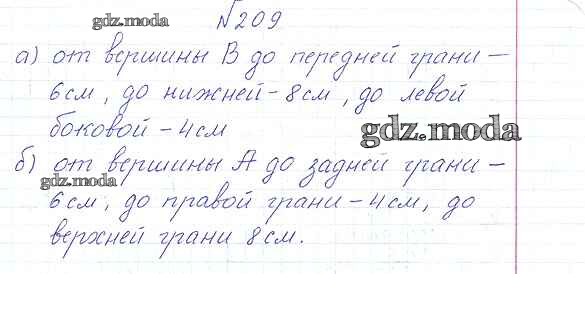 gdz.moda
№209
а) от вершины В до передней грани —
6 см, до нижней - 8 см, до левой
боковой - 4 см
gdz.moda
б) от вершины А до задней грани —
gdz.moda
6 см, до правой грани - 4 см, до
верхней грани 8 см.